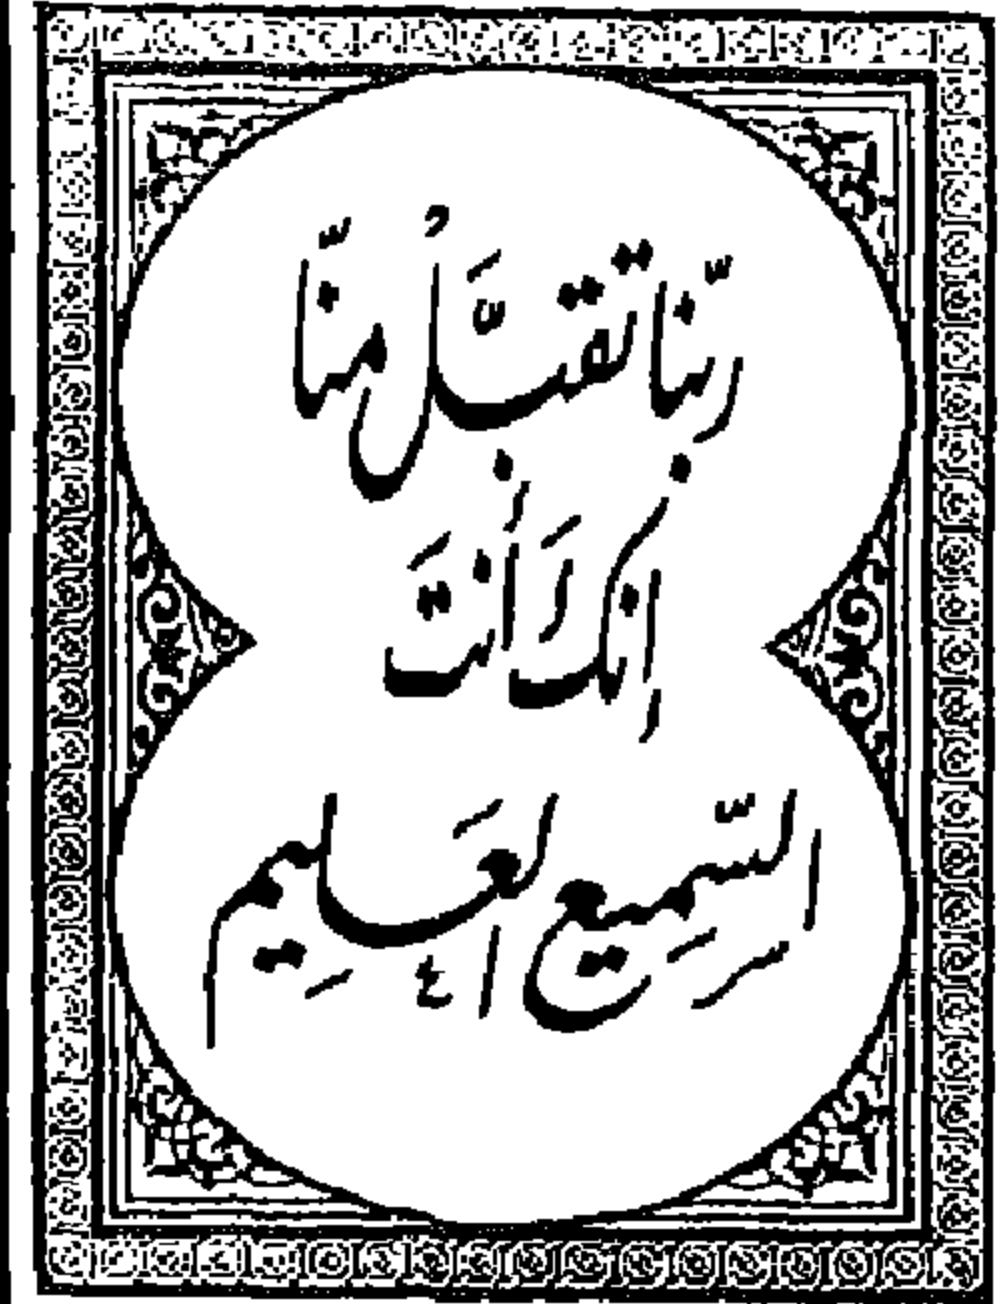 ربّنا تقبَّلْ منّا
اِنكَ أَنتَ
السّمِيع العَلِيم